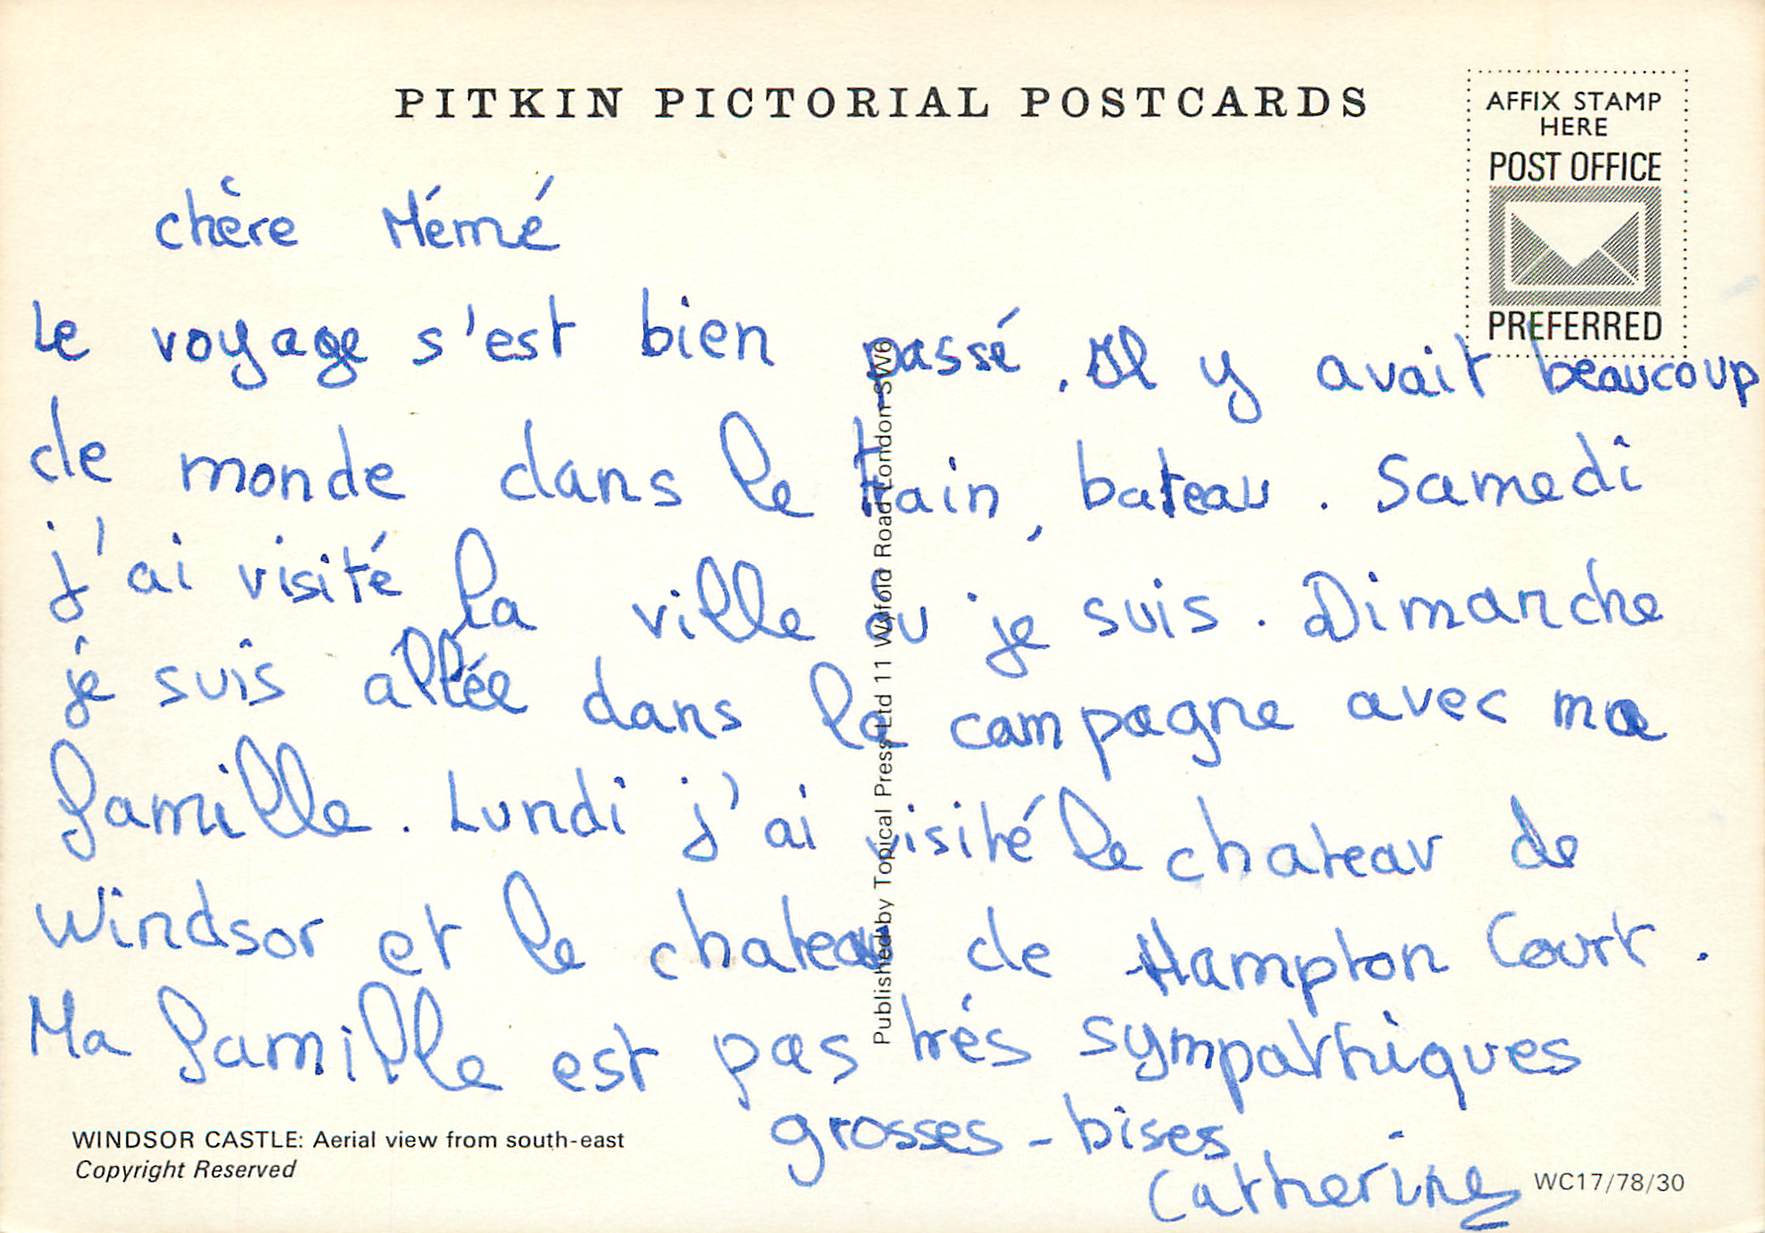 PITKIN PICTORIAL POSTCARDS
AFFIX STAMP
HERE
POST OFFICE
PREFERRED
chère Mémé
Le voyage s'est bien passé. Il y avait beaucoup
de monde dans le train, bateau. Samedi
j'ai visité la ville ou je suis. Dimanche
je suis allée dans la campagne avec ma
famille. Lundi j'ai visité le chateau de
Windsor et le chateau de Hampton Court.
Ma famille est pas trés sympathiques
grosses-bises
Catherine
Published by Topical Press Ltd 11 Wyfold Road London SW6
WINDSOR CASTLE: Aerial view from south-east
Copyright Reserved
WC17/78/30